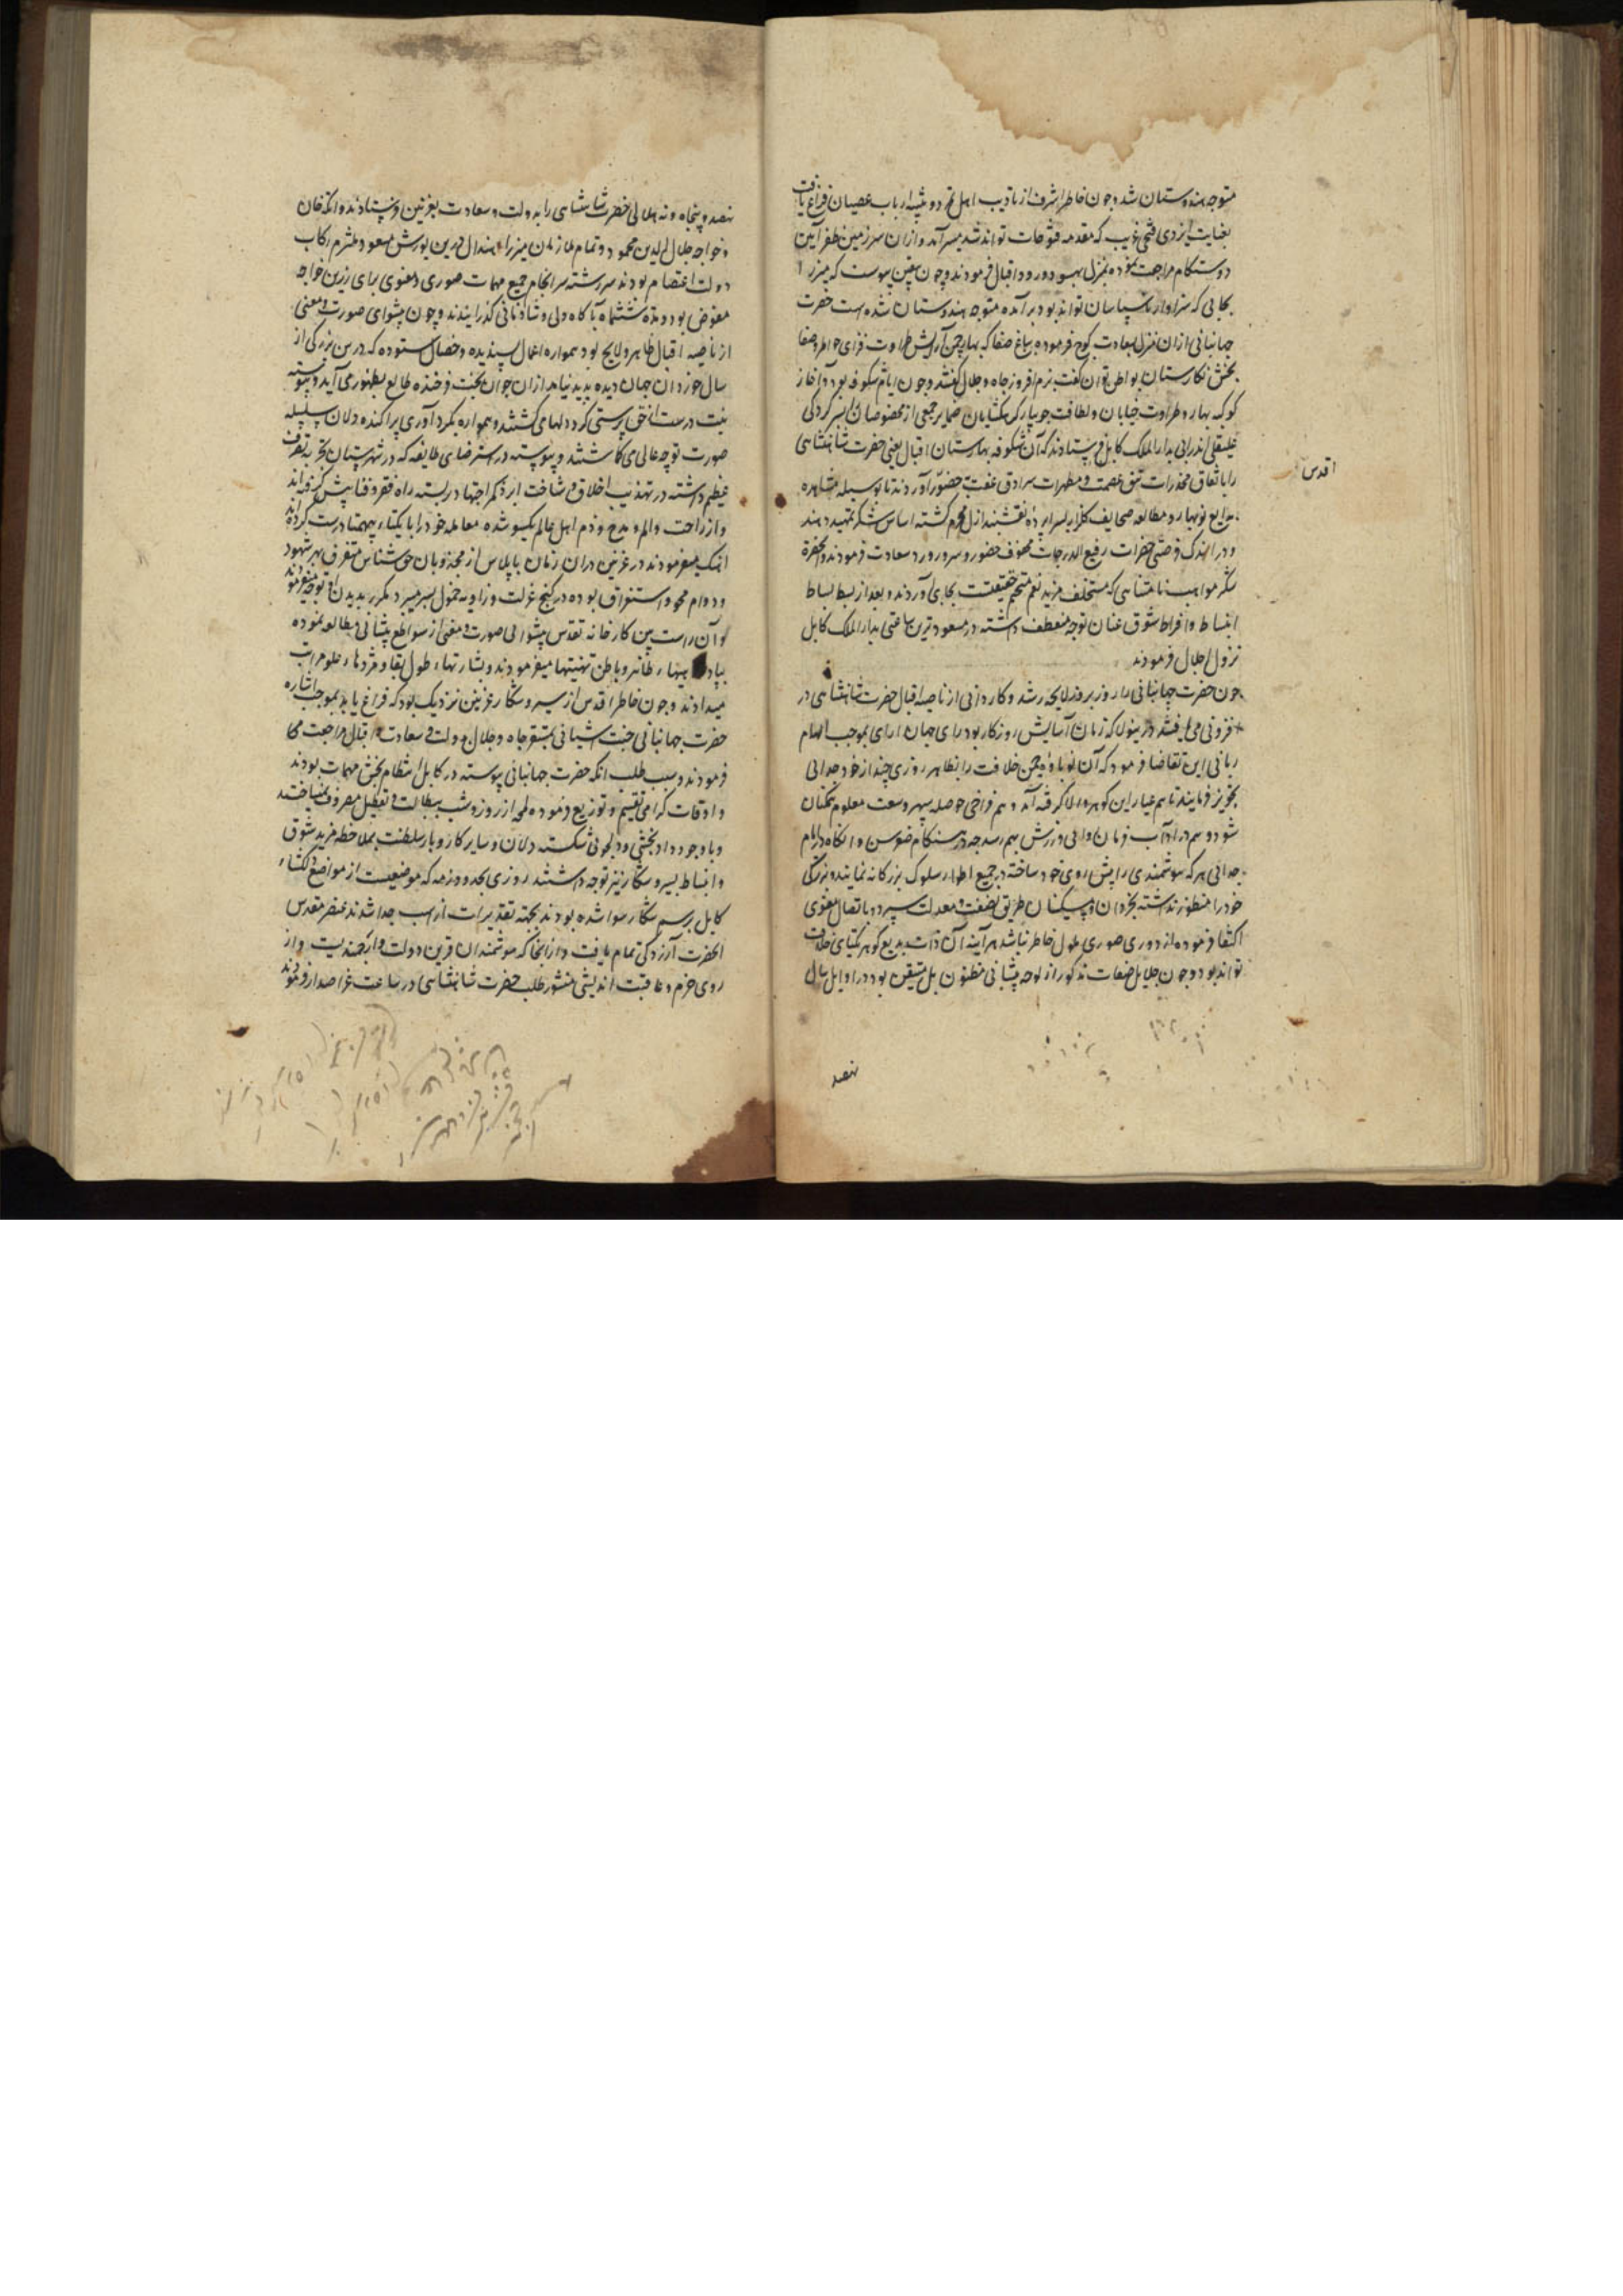 متوجه هندوستان شد و چون خاطر اشرف از تادیب اهل تمرد و تنبیه ارباب عصیان فراغ یافت
بعنایت ایزدی فتحی غریب که مقدمه فتوحات تواند شد میسر آمد و ازان سرزمین ظفر آیین
دوستکام مراجعت نموده بمنزل بهسود ورود اقبال فرمودند و چون بیقین پیوست که میرزا
بجایی که سزاوار ناسپاسان تواند بود بر آمده متوجه هندوستان شده است حضرت
جهانبانی ازان منزل بسعادت کوچ فرموده بباغ صفا که بهار چمن آرایش طراوت فزای خاطر وصفا
بخش نگارستان بواطن توان گفت بزم افروز جاه و جلال گشتند و چون ایام شکوفه بود و آغاز
کوکبه بهار و طراوت خیابان و لطافت جویبار گره گشایان ضمایر جمعی از مخصوصان را بسرکردگی
علیقلی اندرابی بدار الملک کابل فرستادند که آن شکوفه بهارستان اقبال یعنی حضرت شاهنشاهی
اقدس
را باتفاق مخدرات تتق عصمت و مطهرات سرادق عفت بحضور آوردند تا بوسیله مشاهده
بدایع نوبهار و مطالعه صحایف گلزار اسرار پرده نقشبند ازل محرم گشته اساس شکر تمهید دهند
و در اندک فرصتی حضرات رفیع الدرجات محفوف حضور و سرور ورود سعادت فرمودند و آنحضرت
شکر مواهب نامتناهی که مستخلف مزید نعم حقیقت بجای آوردند و بعد از بسط بساط
انبساط و افراط شوق عنان توجه منعطف داشته در مسعودترین ساعتی بدار الملک کابل
نزول اجلال فرمودند
چون حضرت جهانبانی را روز بروز لایحه رشد و کاردانی از ناصیه اقبال حضرت شاهنشاهی در
افزونی می یافتند درینولا که زمان آسایش روزگار بود رای جهان آرای بموجب الهام
ربانی این تقاضا فرمود که آن نوباوه چمن خلافت را بظاهر روزی چند از خود جدایی
تجویز فرمایند تا هم عیار این گوهر والا گرفته آید و هم فراخی حوصله سپهر وسعت معلوم همگنان
شود و هم در آداب فرمان روایی ورزش بهم رسد چه در هنگام خوش و آنگاه در ایام
جدایی هر که هوشمندی را پیش روی خود ساخته در جمیع اطوار سلوک بزرگانه نماید و بزرگی
خود را منظور نداشته بخردان و بیکسان طریق نصفت و معدلت سپرد و باتصال معنوی
اکتفا فرموده از دوری صوری ملول خاطر نباشد هر آینه آن ذات بدیع گوهر یکتای خلافت
تواند بود و چون جلایل صفات مذکور از لوحه پیشانی مظنون بل متیقن بود در اوایل سال
نهصد
نهصد و پنجاه و نه هلالی حضرت شاهنشاهی را بدولت و سعادت بغزنین فرستادند و اتکه خان
و خواجه جلال الدین محمود و تمام ملازمان میرزا هندال درین یورش مسعود ملتزم رکاب
دولت اعتصام بودند سررشته سرانجام جمیع مهمات صوری و معنوی برای رزین خواجه
مفوض بود و مدت ششماه بآگاه دلی و شادمانی گذرانیدند و چون پیشوای صورت و معنی
از ناصیه اقبال ظاهر و لایح بود همواره اعمال پسندیده و خصال ستوده که درین بزرگی از
سال خوردان جهان دیده پدید نیاید ازان جوان بخت فرخنده طالع بظهور می آید و پیوسته
بنیت درست از حق پرستی گرد دلها می گشتند و همواره بگرد آوری پراگنده دلان بسلسله
صورت توجه عالی می گماشتند و پیوسته در استرضای طایفه که در شهرستان تجرد تصرف
عظیم داشته در تهذیب اخلاق و شناخت ایزد کمر اجتهاد بر بسته راه فقر و فنا پیش گرفته اند
و از راحت و الم و مدح و ذم اهل عالم یکسو شده معامله خود را با یکتای بیهمتا درست کرده اند
اهتمام میفرمودند در غزنین دران زمان بابا بلاس از مجذوبان حق شناس متفرق بهر شهود
و دوام محو و استغراق بوده در کنج عزلت و زاویه خمول بسر میبرد مکرر بدیدن او توجه میفرمودند
و آن راست بین کارخانه تقدس پیشوایی صورت و معنی از سواطع پیشانی مطالعه نموده
بپادشاهی ظاهر و باطن تهنیتها میفرمودند و بشارتهای طول بقا و مژدهای علو مراتب
میدادند و چون خاطر اقدس از سیر و شکار غزنین نزدیک بود که فراغ یابد بموجب اشاره
حضرت جهانبانی جنت آشیانی بمستقر جاه و جلال بدولت و سعادت و اقبال مراجعت
فرمودند و سبب طلب آنکه حضرت جهانبانی پیوسته در کابل انتظام بخش مهمات بودند
و اوقات گرامی تقسیم و توزیع فرموده لمحه از روز و شب ببطالت و تعطیل مصروف نمیساختند
و با وجود داد بخشی و دلجوئی شکسته دلان و سایر کار و بار سلطنت بملاحظه مزید شوق
و انبساط بسیر و شکار نیز توجه داشتند روزی بحدود زمه که موضعیست از مواضع دلگشای
کابل برسم شکار سوار شده بودند بحسب تقدیرات از اسب جدا شدند عنصر مقدس
آنحضرت آزردگی تمام یافت و از آنجا که هوشمندان قرین دولت و ارجمندیست و از
روی حزم و عاقبت اندیشی منشور طلب حضرت شاهنشاهی در ساعت عز اصدار فرمودند